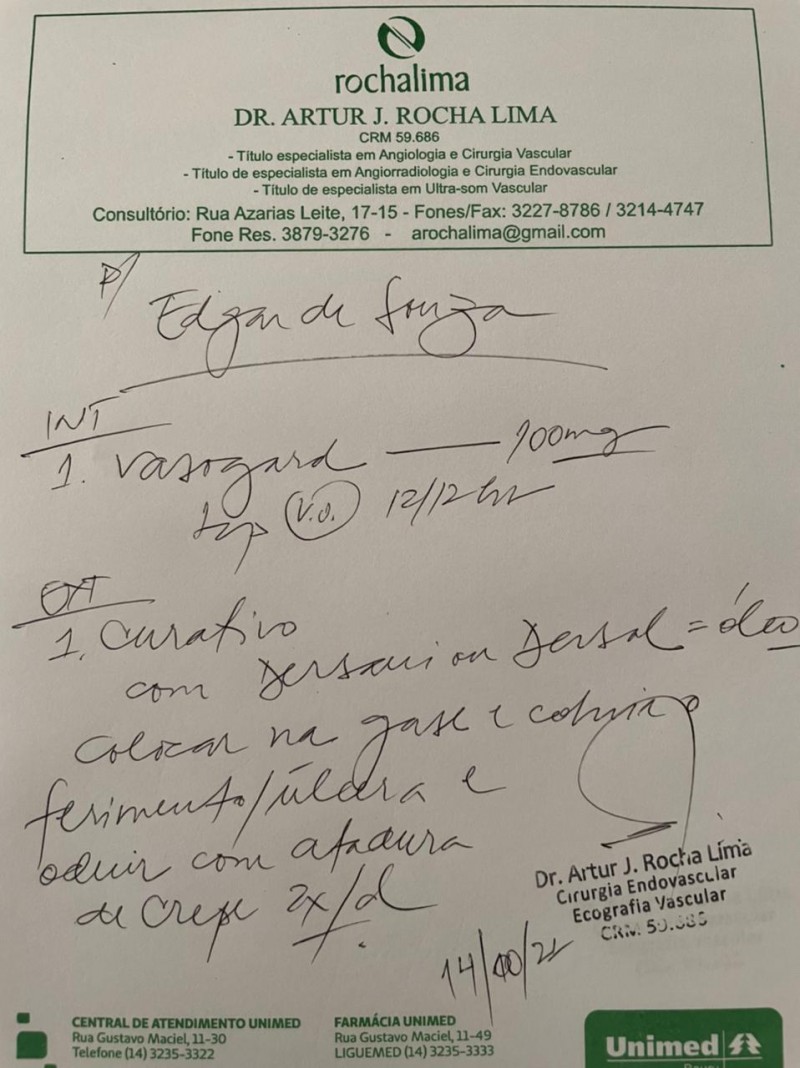 rochalima
DR. ARTUR J. ROCHA LIMA
CRM 59.686
- Título especialista em Angiologia e Cirurgia Vascular
- Título de especialista em Angiorradiologia e Cirurgia Endovascular
- Título de especialista em Ultra-som Vascular
Consultório: Rua Azarias Leite, 17-15 - Fones/Fax: 3227-8786 / 3214-4747
Fone Res. 3879-3276 - arochalima@gmail.com
P/
Edgar de Souza
INT
1. Vasogard — 100mg
1cp V.O. 12/12hs
EXT
1. Curativo
com Dersani ou Dersal = óleo
colocar na gase e cobrir o
ferimento/úlcera e
ocluir com atadura
de Crepe 2x/d
Dr. Artur J. Rocha Lima
Cirurgia Endovascular
Ecografia Vascular
CRM. 59.686
14/10/21
CENTRAL DE ATENDIMENTO UNIMED
Rua Gustavo Maciel, 11-30
Telefone (14) 3235-3322
FARMÁCIA UNIMED
Rua Gustavo Maciel, 11-49
LIGUEMED (14) 3235-3333
Unimed